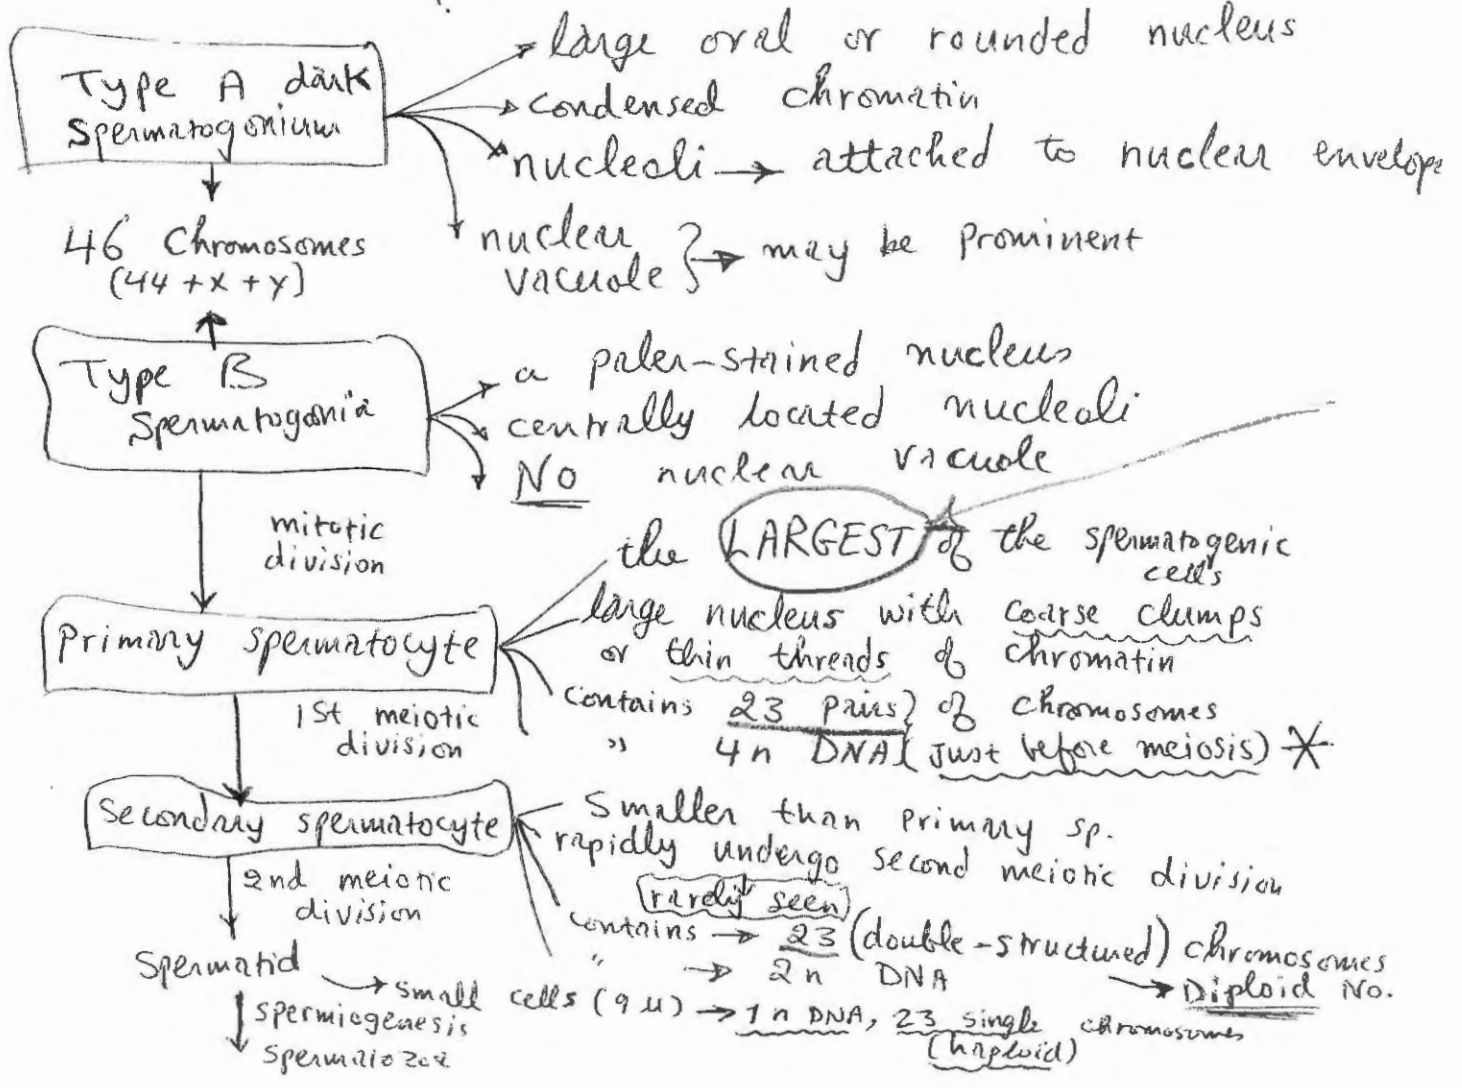 Type A dark
spermatogonium
large oval or rounded nucleus
condensed chromatin
nucleoli → attached to nuclear envelope
nuclear
vacuole } → may be prominent
46 Chromosomes
(44 + X + Y)
Type B
spermatogonia
a paler-stained nucleus
centrally located nucleoli
No nuclear vacuole
mitotic
division
Primary spermatocyte
the LARGEST of the spermatogenic
cells
large nucleus with coarse clumps
or thin threads of chromatin
contains 23 pairs } of chromosomes
" 4n DNA ( just before meiosis) *
1st meiotic
division
Secondary spermatocyte
Smaller than primary sp.
rapidly undergo second meiotic division
(rarely seen)
contains → 23 (double-structured) chromosomes
" → 2n DNA → Diploid No.
2nd meiotic
division
Spermatid → small cells (9 u) → 1n DNA, 23 single chromosomes
(haploid)
spermiogenesis
spermatozoa